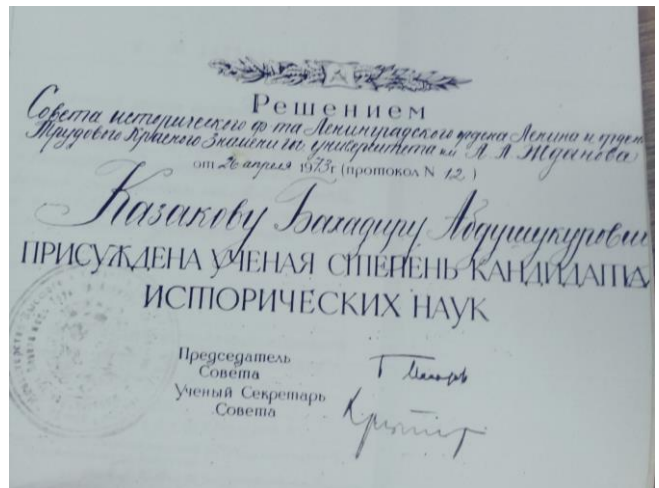 Решением
Совета исторического ф-та Ленинградского ордена Ленина и орден
Трудового Красного Знамени гос. университета им А. А. Жданова
от 26 апреля 1973г (протокол N 12 )
Казакову Бахадиру Абдушукурови
ПРИСУЖДЕНА УЧЕНАЯ СТЕПЕНЬ КАНДИДАТА
ИСТОРИЧЕСКИХ НАУК
Председатель
Совета
Ученый Секретарь
Совета